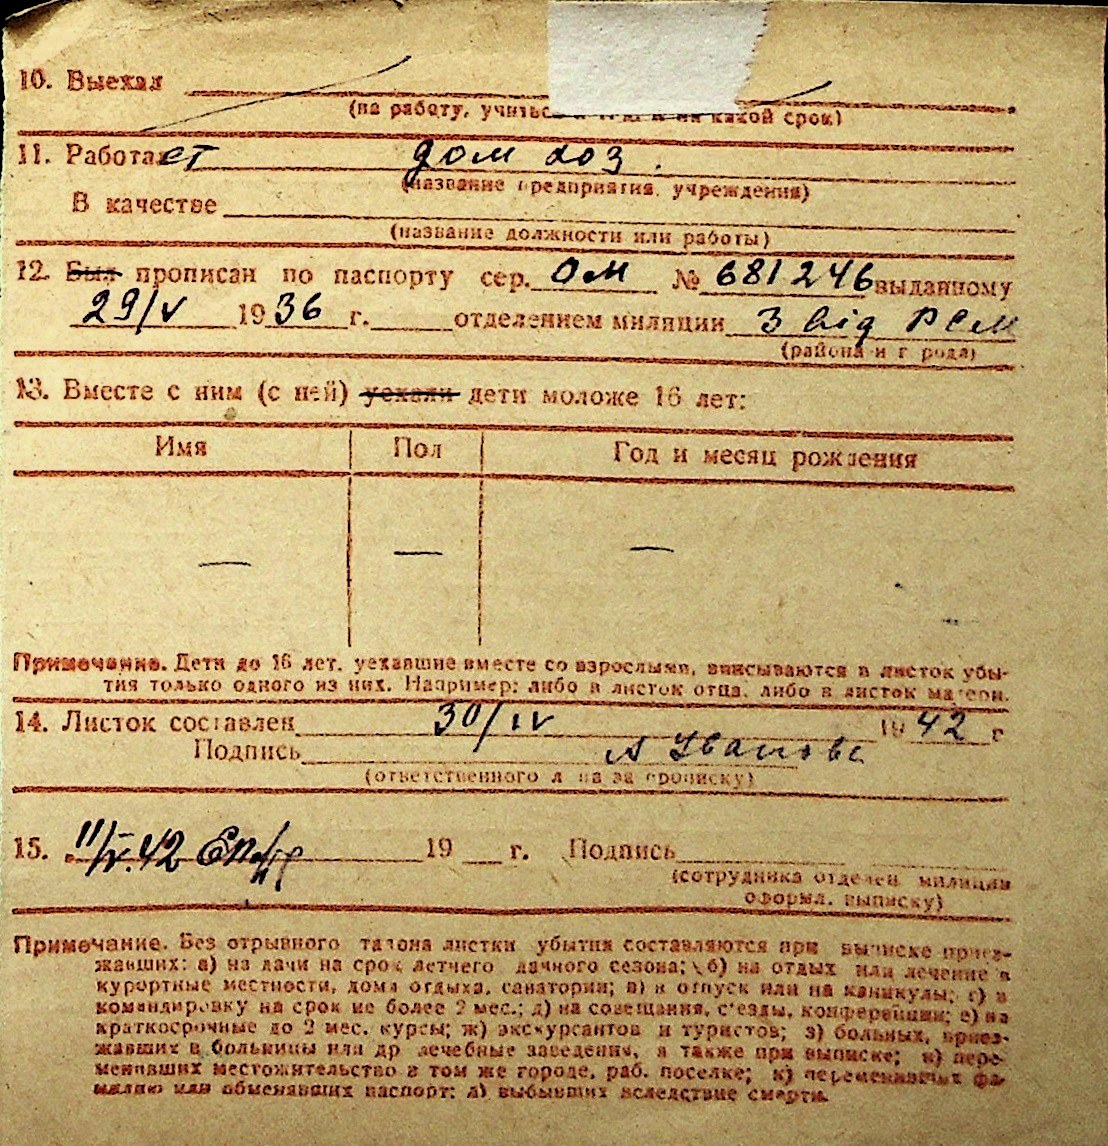 10. Выехал
(на работу, учиться и на какой срок)
11. Работает дом хоз.
(название предприятия, учреждения)
В качестве
(название должности или работы)
12. Был прописан по паспорту сер. ОМ № 681246 выданному
29/V 1936 г. отделением милиции 3 від РСМ
(района и города)
13. Вместе с ним (с ней) уехали дети моложе 16 лет:
Имя Пол Год и месяц рождения
— — —
Примечание. Дети до 16 лет, уехавшие вместе со взрослыми, вписываются в листок убы-
тия только одного из них. Например: либо в листок отца, либо в листок матери.
14. Листок составлен 30/IV 1942 г
Подпись А Иванова
(ответственного лица за прописку)
15. 11/V.42 19 г. Подпись
(сотрудника отделен. милиции
оформл. выписку)
Примечание. Без отрывного талона листки убытия составляются при выписке приез-
жавших: а) на дачи на срок летнего дачного сезона; б) на отдых или лечение в
курортные местности, дома отдыха, санатории; в) в отпуск или на каникулы; г) в
командировку на срок не более 2 мес.; д) на совещания, съезды, конференции; е) на
краткосрочные до 2 мес. курсы; ж) экскурсантов и туристов; з) больных, приез-
жавших в больницы или др лечебные заведения, а также при выписке; и) пере-
менивших местожительство в том же городе, раб. поселке; к) переменивших фа-
милию или обменявших паспорт; л) выбывших вследствие смерти.